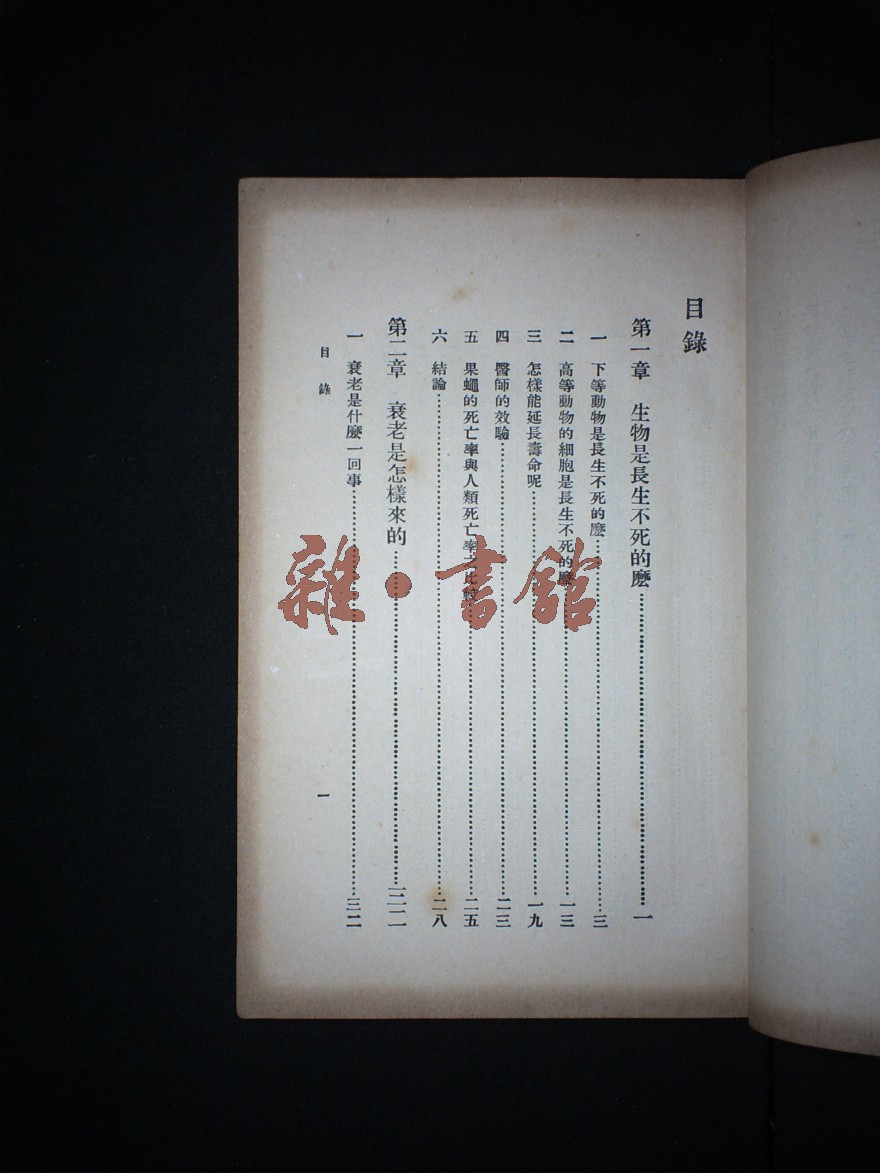 目錄
第一章 生物是長生不死的麽……一
一 下等動物是長生不死的麽……三
二 高等動物的細胞是長生不死的麽……一三
三 怎樣能延長壽命呢……一九
四 醫師的效驗……二三
五 果蠅的死亡率與人類死亡率之比較……二五
六 結論……二八
第二章 衰老是怎樣來的……三二
一 衰老是什麽一回事……三二
目錄
一
雜·書館